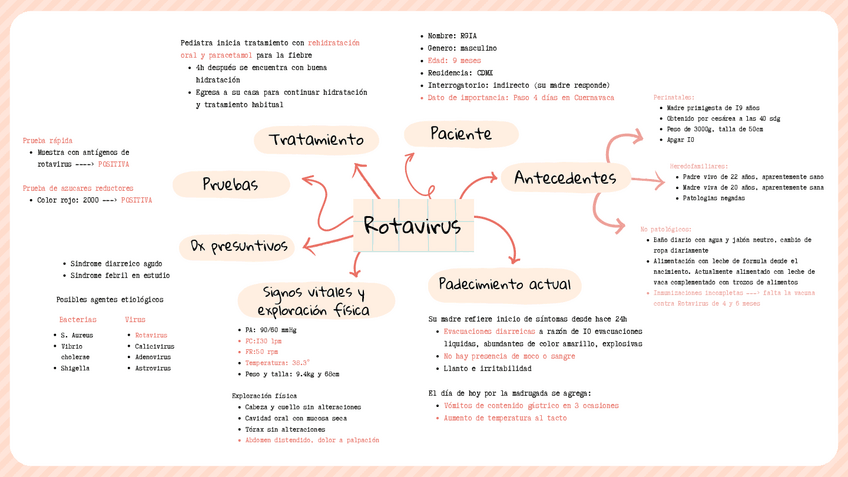 Pediatra inicia tratamiento con rehidratación
oral y paracetamol para la fiebre
• 4h después se encuentra con buena
hidratación
• Egresa a su casa para continuar hidratación
y tratamiento habitual
• Nombre: RGIA
• Genero: masculino
• Edad: 9 meses
• Residencia: CDMX
• Interrogatorio: indirecto (su madre responde)
• Dato de importancia: Paso 4 días en Cuernavaca
Perinatales:
• Madre primigesta de 19 años
• Obtenido por cesárea a las 40 sdg
• Peso de 3000g, talla de 50cm
• Apgar 10
Prueba rápida
• Muestra con antígenos de
rotavirus ----> POSITIVA
Prueba de azucares reductores
• Color rojo: 2000 ---> POSITIVA
Tratamiento
Paciente
Pruebas
Antecedentes
Heredofamiliares:
• Padre vivo de 22 años, aparentemente sano
• Madre viva de 20 años, aparentemente sana
• Patologías negadas
Rotavirus
No patológicos:
• Baño diario con agua y jabón neutro, cambio de
ropa diariamente
• Alimentación con leche de formula desde el
nacimiento. Actualmente alimentado con leche de
vaca complementado con trozos de alimentos
• Inmunizaciones incompletas ---> falta la vacuna
contra Rotavirus de 4 y 6 meses
Dx presuntivos
• Síndrome diarreico agudo
• Síndrome febril en estudio
Posibles agentes etiológicos
Bacterias
• S. Aureus
• Vibrio
cholerae
• Shigella
Virus
• Rotavirus
• Calicivirus
• Adenovirus
• Astrovirus
Signos vitales y
exploración física
• PA: 90/60 mmHg
• FC:130 lpm
• FR:50 rpm
• Temperatura: 38.3°
• Peso y talla: 9.4kg y 68cm
Exploración física
• Cabeza y cuello sin alteraciones
• Cavidad oral con mucosa seca
• Tórax sin alteraciones
• Abdomen distendido, dolor a palpación
Padecimiento actual
Su madre refiere inicio de síntomas desde hace 24h
• Evacuaciones diarreicas a razón de 10 evacuaciones
líquidas, abundantes de color amarillo, explosivas
• No hay presencia de moco o sangre
• Llanto e irritabilidad
El día de hoy por la madrugada se agrega:
• Vómitos de contenido gástrico en 3 ocasiones
• Aumento de temperatura al tacto